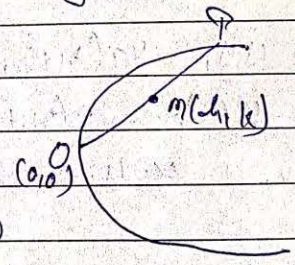 P
M(h, k)
O
(0,0)
)